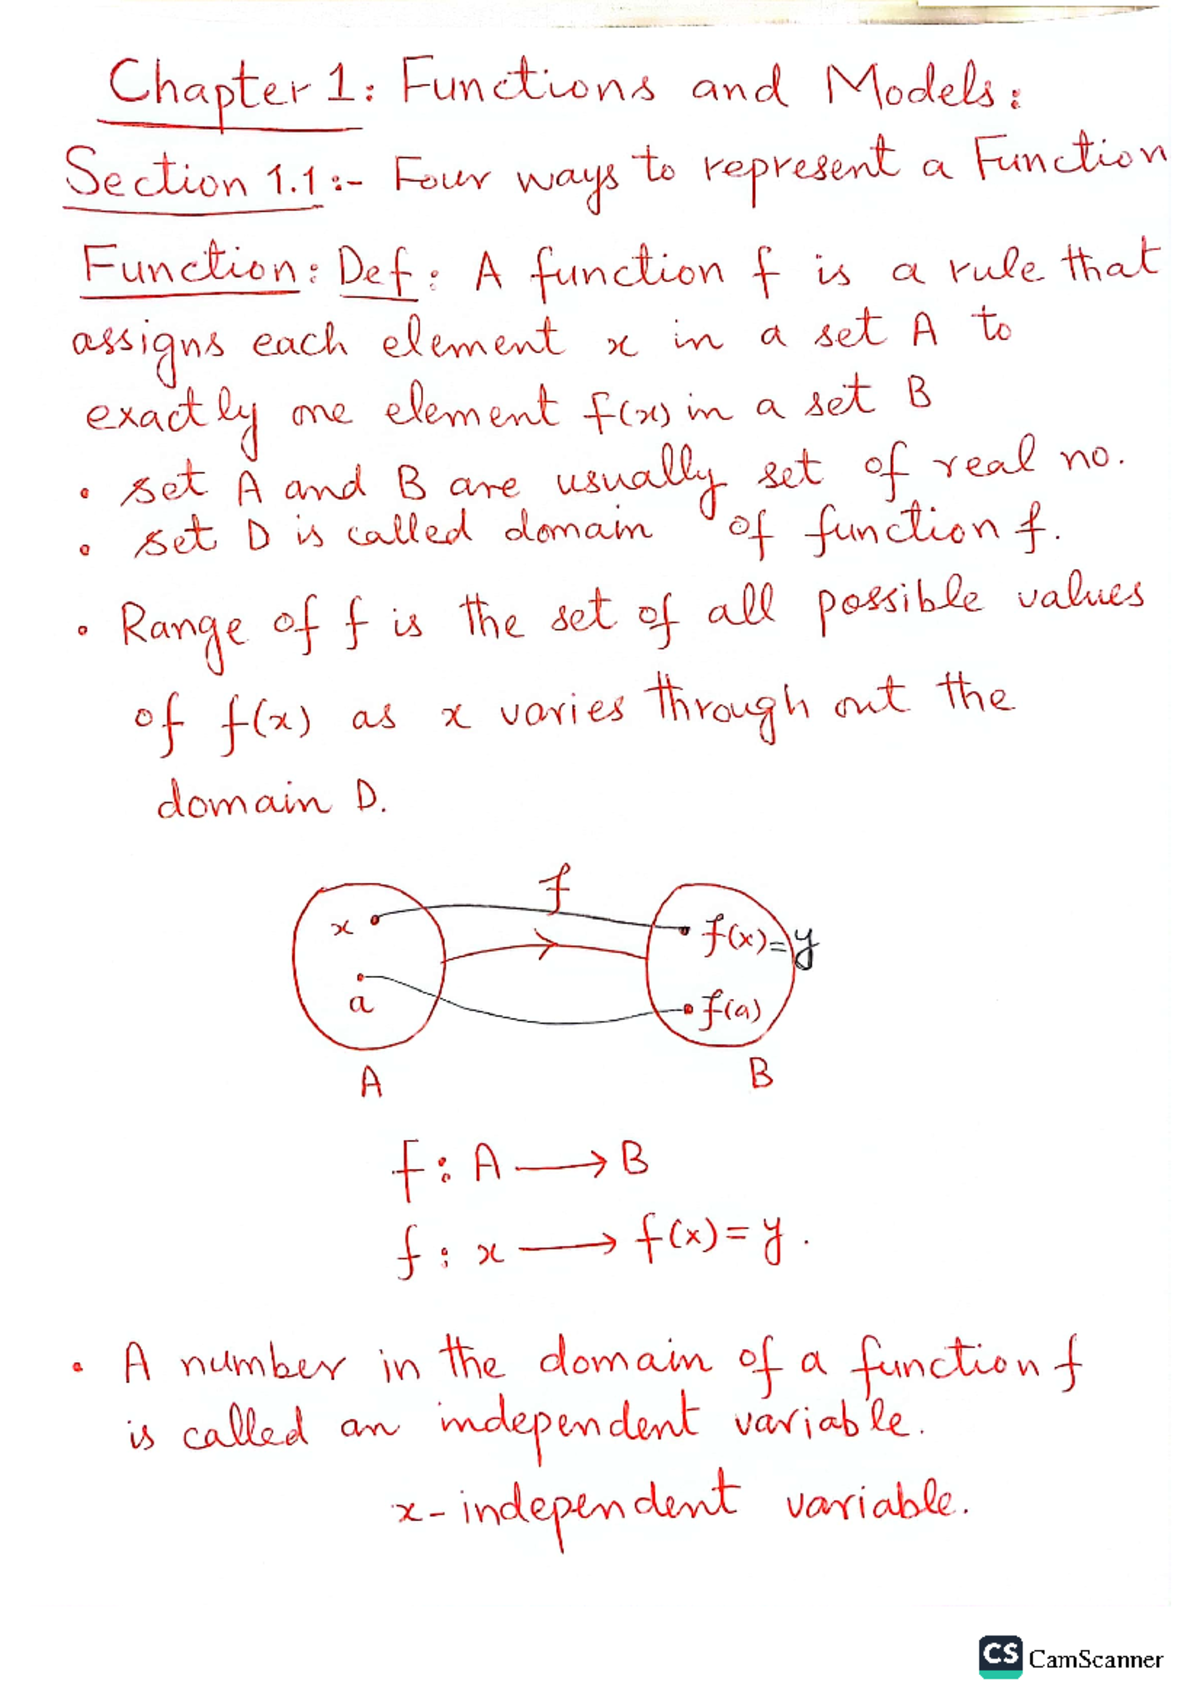 Chapter 1: Functions and Models:
Section 1.1:- Four ways to represent a Function
Function: Def: A function f is a rule that
assigns each element x in a set A to
exactly one element f(x) in a set B
• set A and B are usually set of real no.
• set D is called domain of function f.
• Range of f is the set of all possible values
of f(x) as x varies through out the
domain D.
f
x f(x)=y
a f(a)
A B
f: A ⟶ B
f: x ⟶ f(x)=y.
• A number in the domain of a function f
is called an independent variable.
x- independent variable.
CS CamScanner